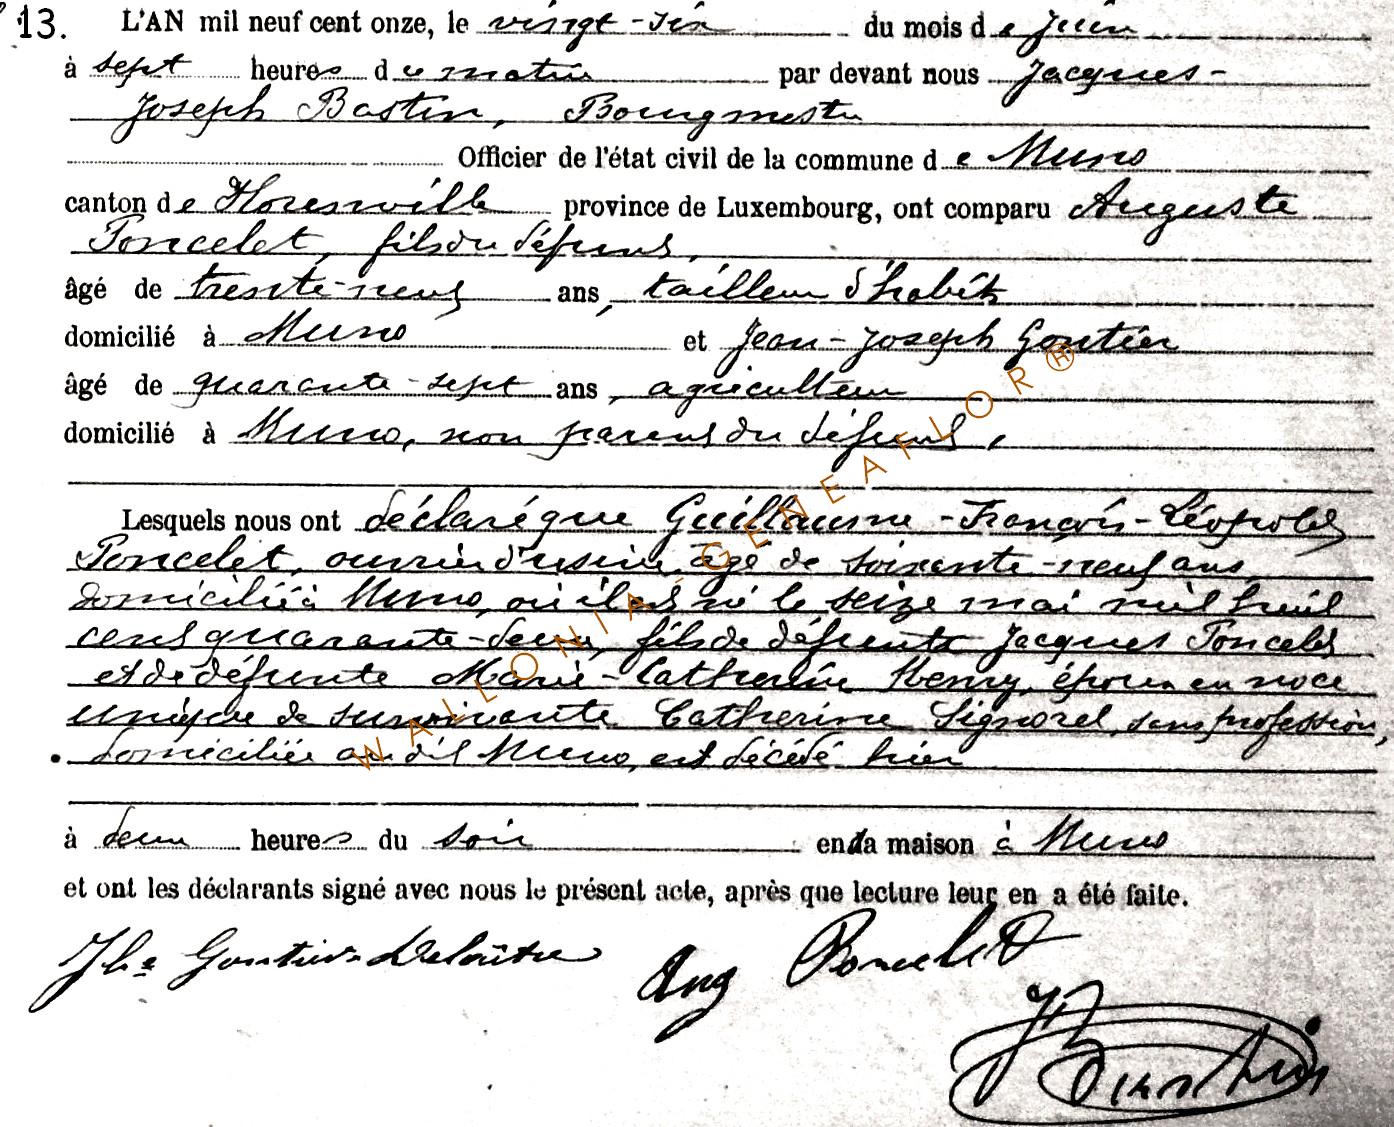 13. L'AN mil neuf cent onze, le vingt-six du mois de juin
à sept heures du matin par devant nous Jacques-
Joseph Bastin, Bourgmestre
Officier de l'état civil de la commune de Muno
canton de Florenville province de Luxembourg, ont comparu Auguste
Poncelet, fils du défunt,
âgé de trente-neuf ans, tailleur d'habits
domicilié à Muno et Jean-Joseph Goutier
âgé de quarante-sept ans, agriculteur
domicilié à Muno, non parent du défunt,
Lesquels nous ont déclaré que Guillaume-François-Léopold
Poncelet, ouvrier d'usine, âgé de soixante-neuf ans,
domicilié à Muno, où il est né le seize mai mil huit
cent quarante-deux, fils de défunts Jacques Poncelet
et de défunte Marie-Catherine Henry, époux en noce
unique de survivante Catherine Signorel, sans profession,
domiciliée au dit Muno, est décédé hier
à deux heures du soir en la maison à Muno
et ont les déclarants signé avec nous le présent acte, après que lecture leur en a été faite.
Goutier Aug Poncelet
JBastin
WALLONIA-GENEAFLOR®